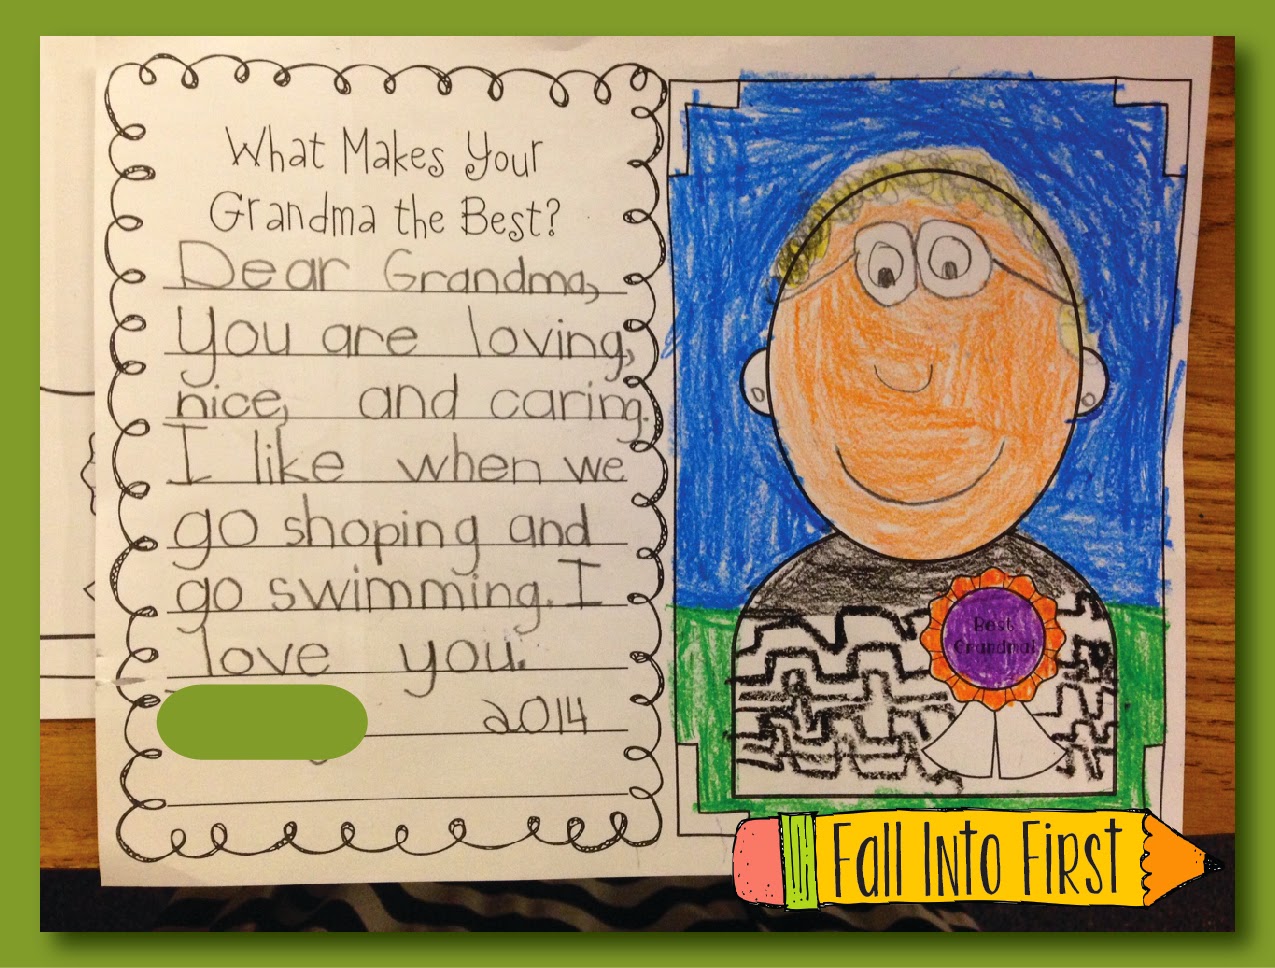 What Makes Your
Grandma the Best?
Dear Grandma,
you are loving,
nice, and caring.
I like when we
go shoping and
go swimming. I
love you.
2014
Best
Grandma!
Fall Into First